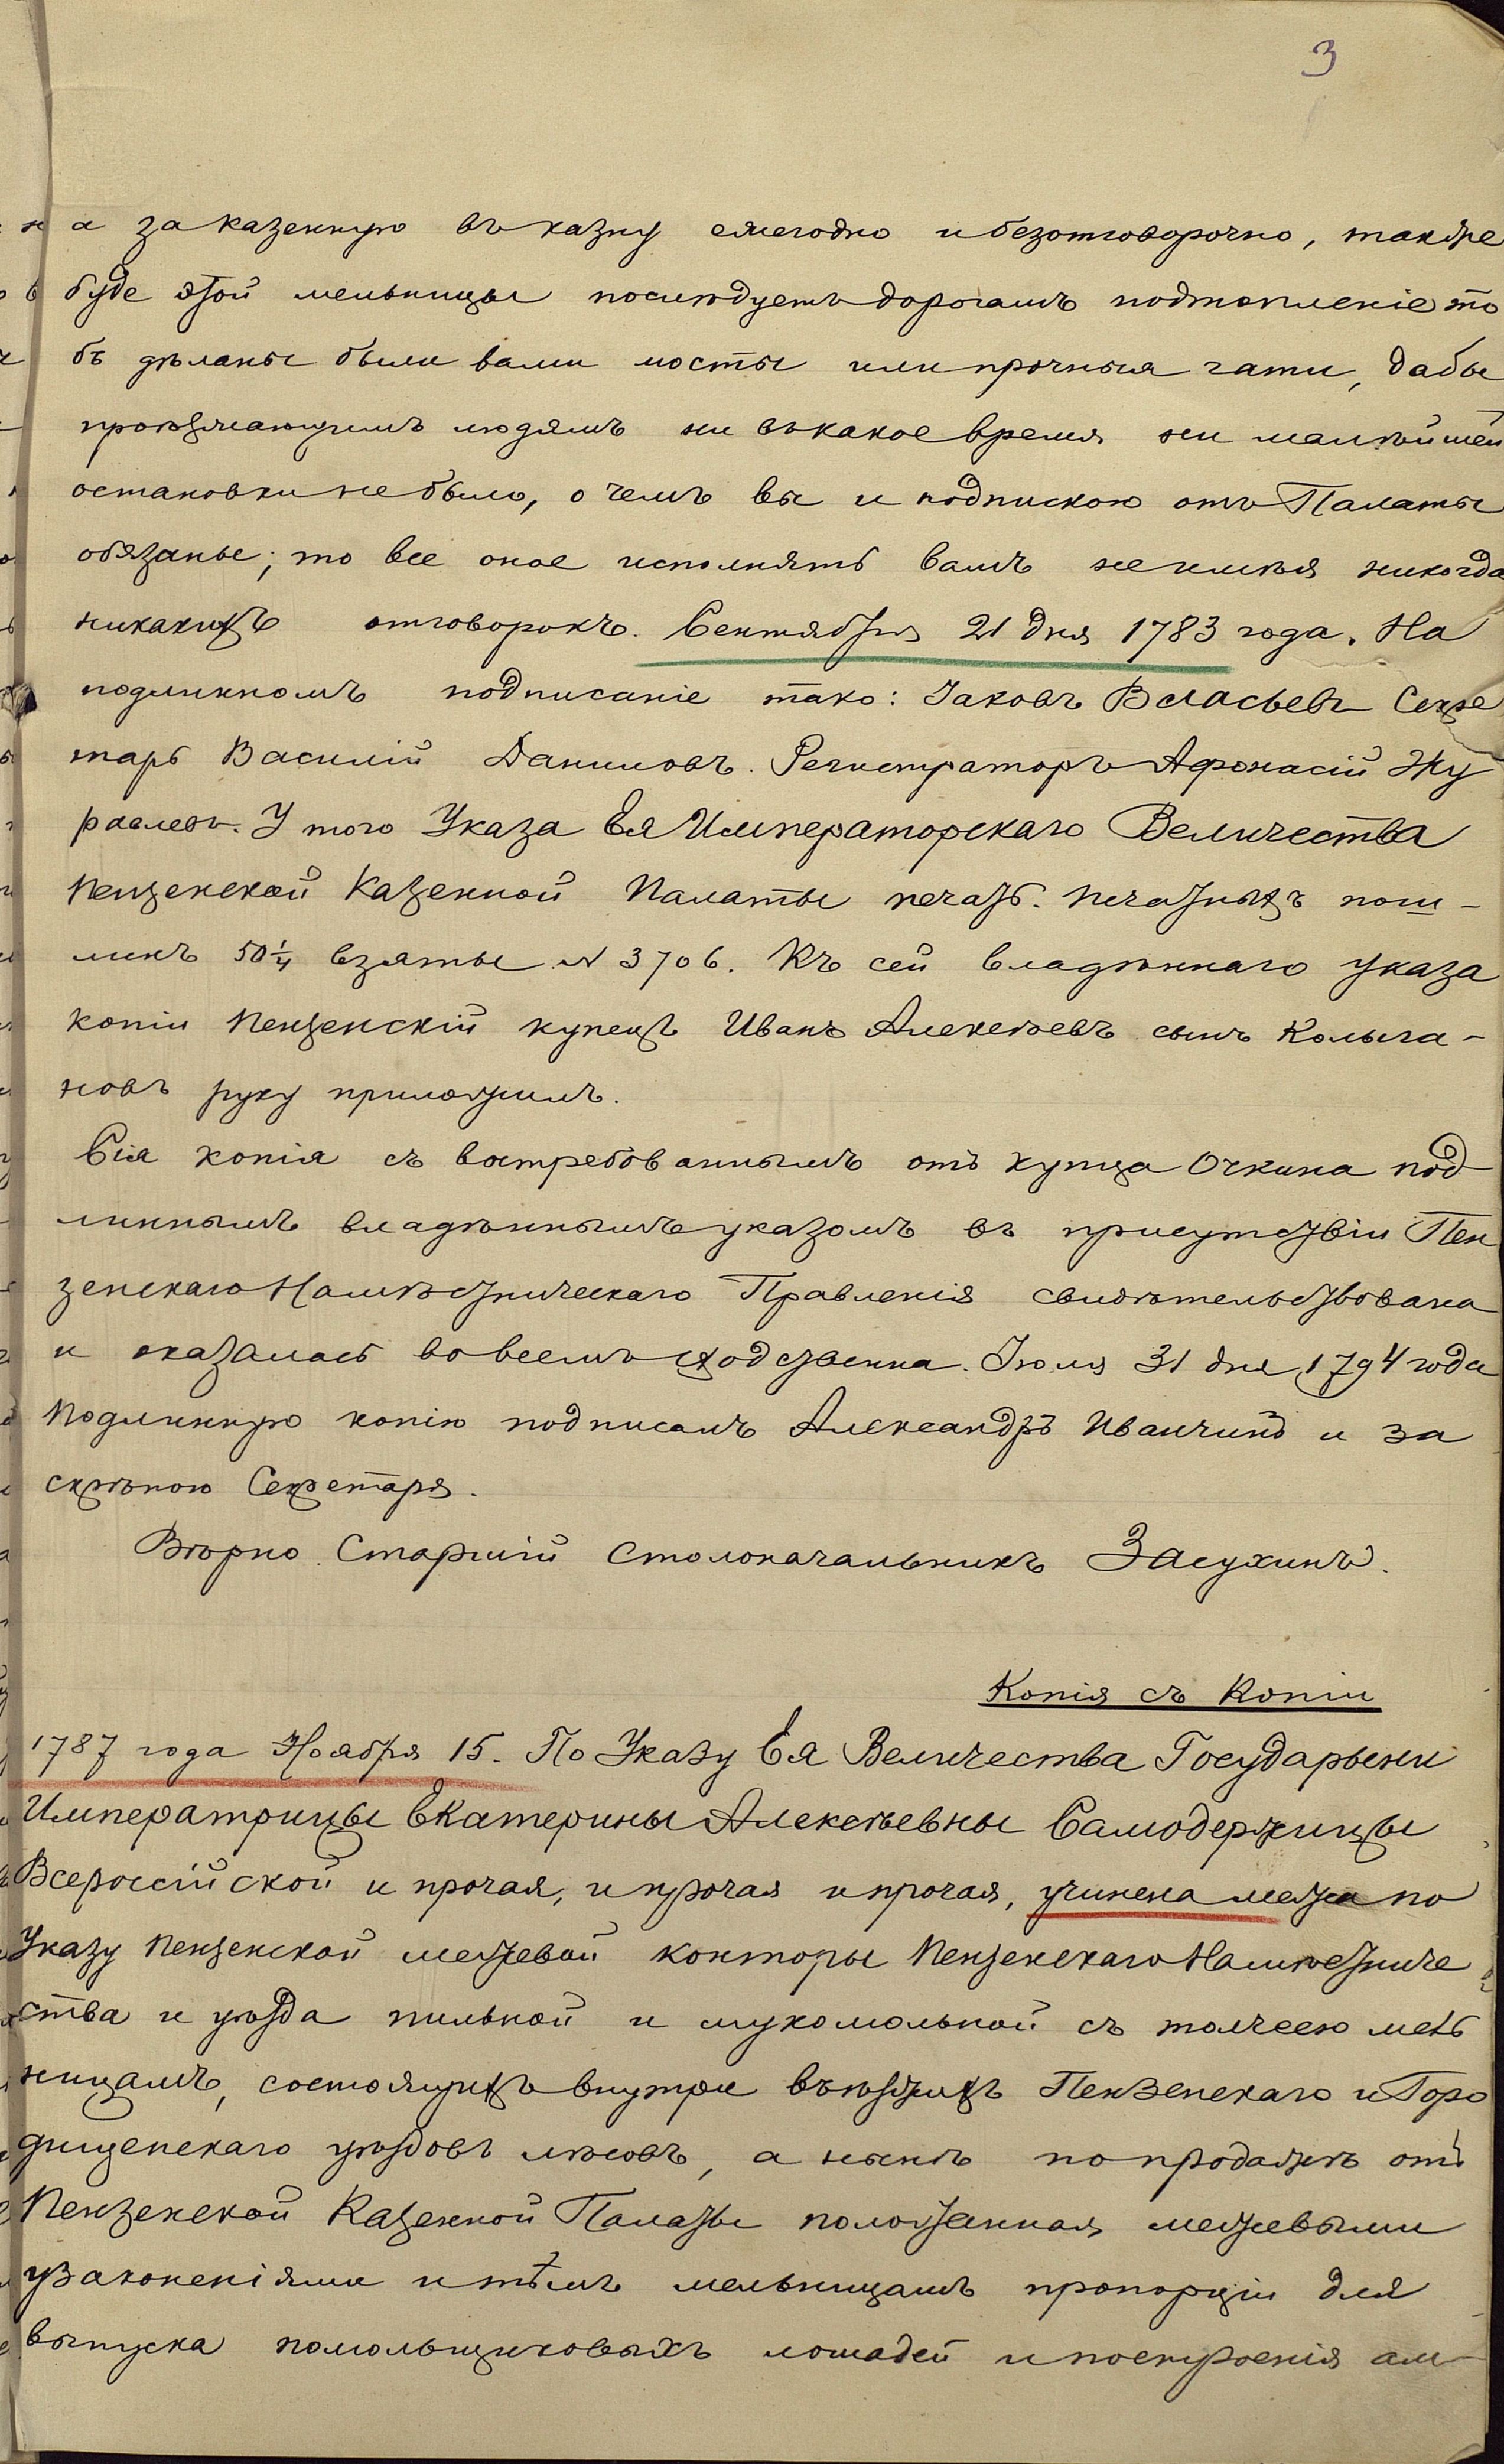 3
а за казенную въ казну ежегодно и безотговорочно, также
буде этой мельницы послѣдуетъ дорогамъ подтопленіе то
бъ дѣланы были вами мосты или прочныя гати, дабы
проѣзжающимъ людямъ ни въ какое время ни малѣйшей
остановки не было, о чемъ вы и подпискою отъ Палаты
обязаны; то все оное исполнять вамъ не имѣя никогда
никакихъ отговорокъ. Сентября 21 дня 1783 года. На
подлинномъ подписаніе тако: Іаковъ Власьевъ Секре
тарь Василій Даниловъ. Регистраторъ Афонасій Жу
равлевъ. У того Указа Ея Императорскаго Величества
Пензенской Казенной Палаты печать. Печатныхъ пош-
линъ 50 1/4 взяты N 3706. Къ сей владѣннаго указа
копіи Пензенскій купецъ Иванъ Алексѣевъ сынъ Колыга-
новъ руку приложилъ.
Сія копія съ востребованнымъ отъ купца Очкина под
линнымъ владѣннымъ указомъ въ присутствіи Пен
зенскаго Намѣстническаго Правленія свидѣтельствована
и оказалась во всемъ сходственна. Іюля 31 дня 1794 года
Подлинную копію подписалъ Александръ Иванчинъ и за
скрѣпою Секретаря.
Вѣрно Старшій Столоначальникъ Засухинъ.
Копія съ Копіи
1787 года Ноября 15. По Указу Ея Величества Государыни
Императрицы Екатерины Алексѣевны Самодержицы
Всероссійской и прочая, и прочая и прочая, учинена межа по
Указу Пензенской межевой конторы Пензенскаго Намѣстниче
ства и уѣзда пильной и мукомольной съ толчеею мель
ницамъ, состоящихъ внутри въѣзжихъ Пензенскаго и Горо
дищенскаго уѣздовъ лѣсовъ, а нынѣ по продажѣ отъ
Пензенской Казенной Палаты положенная межевыми
узаконеніями и тѣмъ мельницамъ пропорціи для
выпуска помольщиковыхъ лошадей и построенія ам-